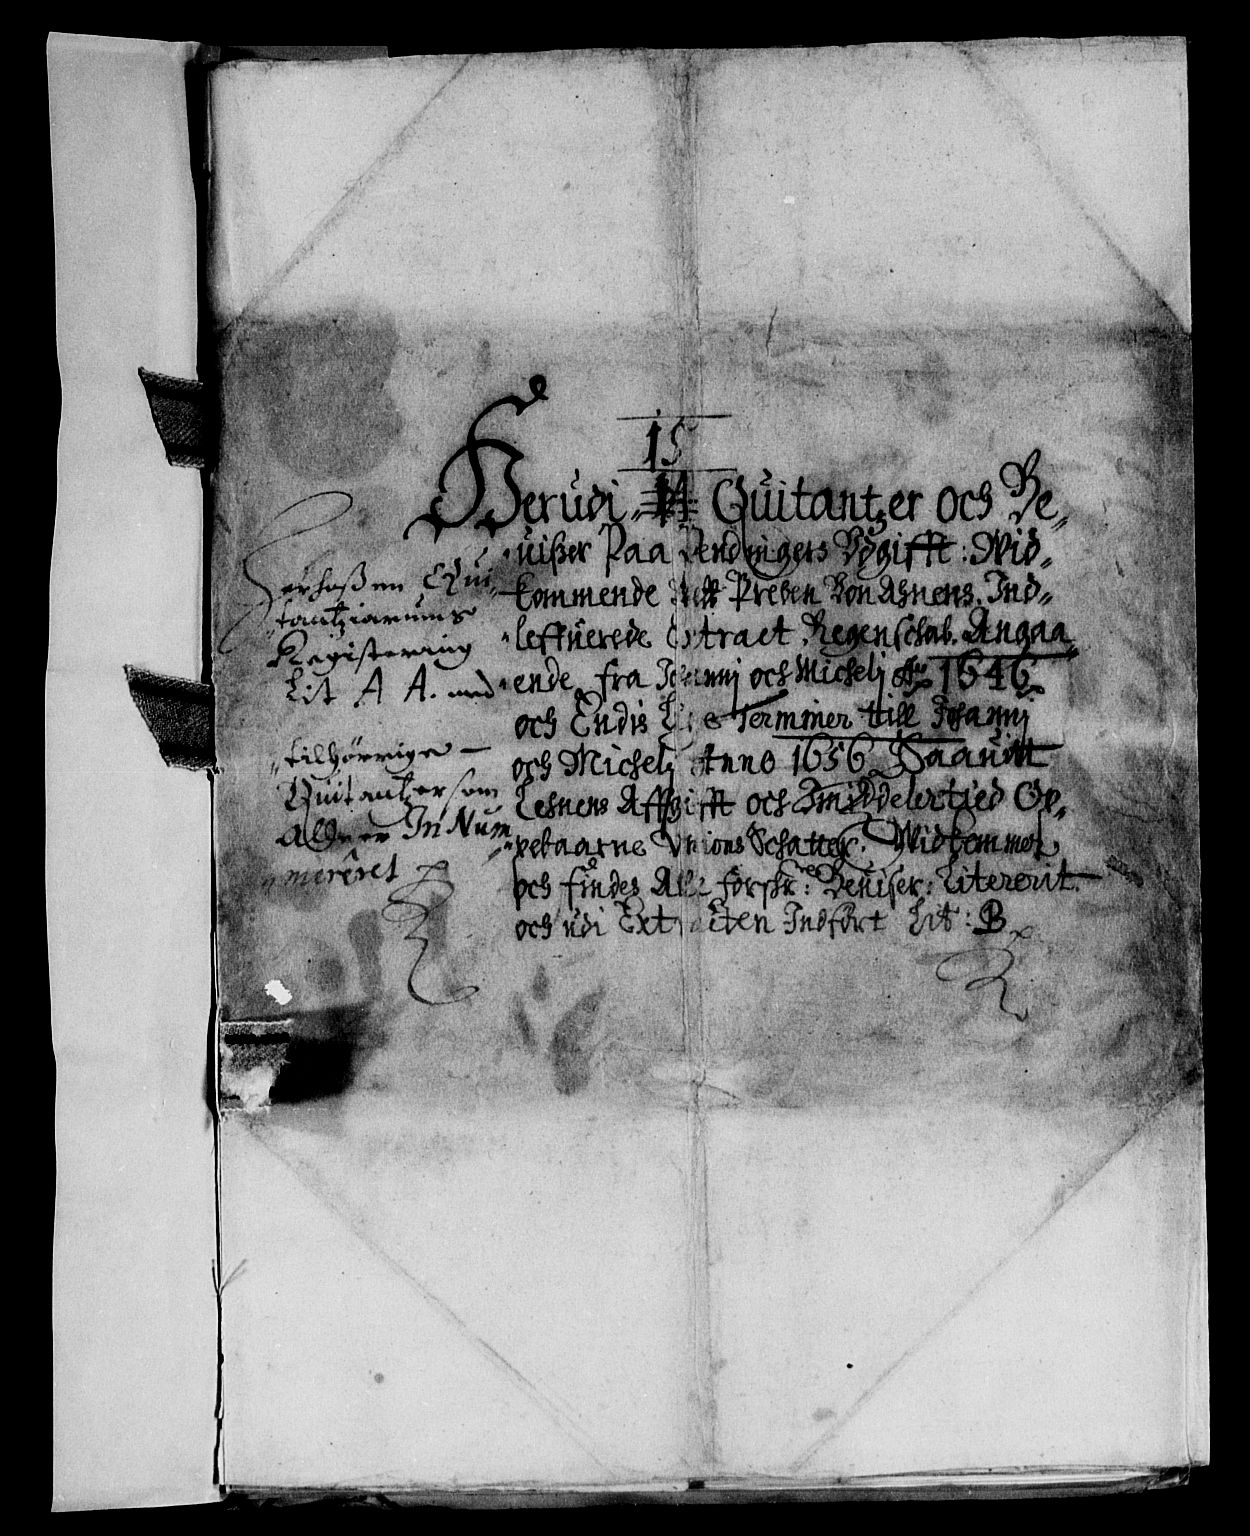 15
Herudi 14 Quitantzer och Be„
„uißer Paa Pendingers Udgifft: Wid„
kommende Preben Von Ahnens. Ind„
„leffuerede Extract, Regenschab. Angaa„
ende, fra Johannj och Michelj Ao 1646
och Endis Terminer till Johannj
och Michelj Anno 1656 Saauitt
Lehnens Affgifft och Imiddelertied Op„
„pebaarne Unions Schatter. Widkommer
och findes Alle forskr: Beuiser: Litererit
och udi Extracten Indført Lit: B
erhoß en Qui„
„tantziarums
Registering
Lit A A. med
„tilhörrige —
Quitantzer som
Alle er In Num„
„mereret